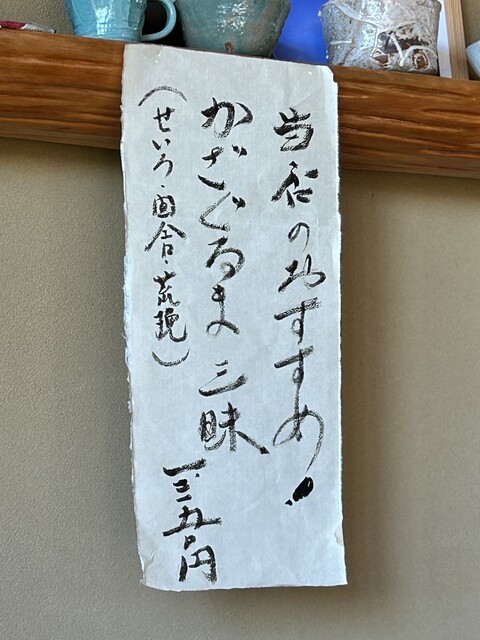 当店のおすすめ!
かざぐるま三昧
一、三五〇円
(せいろ・田舎・荒挽)